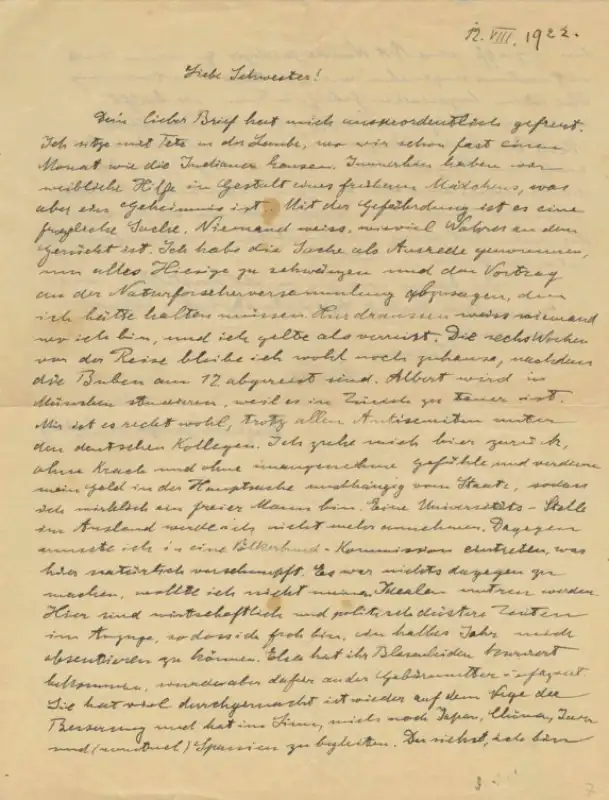 12. VIII. 1922.
Liebe Schwester!
Dein lieber Brief hat mich ausserordentlich gefreut.
Ich sitze mit Tete in der Laube, wo wir schon fast einen
Monat wie die Indianer hausen. Immerhin haben wir
weibliche Hilfe in Gestalt eines früheren Mädchens, was
aber ein Geheimnis ist. Mit der Gefährdung ist es eine
fragliche Sache. Niemand weiss, wieviel Wahres an dem
Gerücht ist. Ich habe die Sache als Ausrede genommen,
um alles Hiesige zu schwänzen und den Vortrag
an der Naturforscherversammlung abzusagen, den
ich hätte halten müssen. Hier draussen weiss niemand
wo ich bin, und ich gelte als verreist. Die sechs Wochen
vor der Reise bleibe ich wohl noch zuhause, nachdem
die Buben am 12 abgereist sind. Albert wird in
München studieren, weil es in Zürich zu teuer ist.
Mir ist es recht wohl, trotz allen Antisemiten unter
den deutschen Kollegen. Ich ziehe mich hier zurück,
ohne Krach und ohne unangenehme Gefühle und verdiene
mein Geld in der Hauptsache unabhängig vom Staate, sodass
ich wirklich ein freier Mann bin. Eine Universitäts-Stelle
im Ausland werde ich nicht mehr annehmen. Dagegen
musste ich in eine Völkerbund-Kommission eintreten, was
hier natürlich verschnupft. Es war nichts dagegen zu
machen, wollte ich nicht meinen Idealen untreu werden.
Hier sind wirtschaftlich und politisch düstere Zeiten
im Anzuge, so dass ich froh bin, ein halbes Jahr mich
absentieren zu können. Elsa hat ihr Blasenleiden
bekommen, wurde aber dafür an der Gebärmutter
Sie hat viel durchgemacht ist wieder auf dem Wege der
Besserung und hat im Sinn, mich nach Japan, China, Java
und (eventuel) Spanien zu begleiten. Du siehst, ich bin